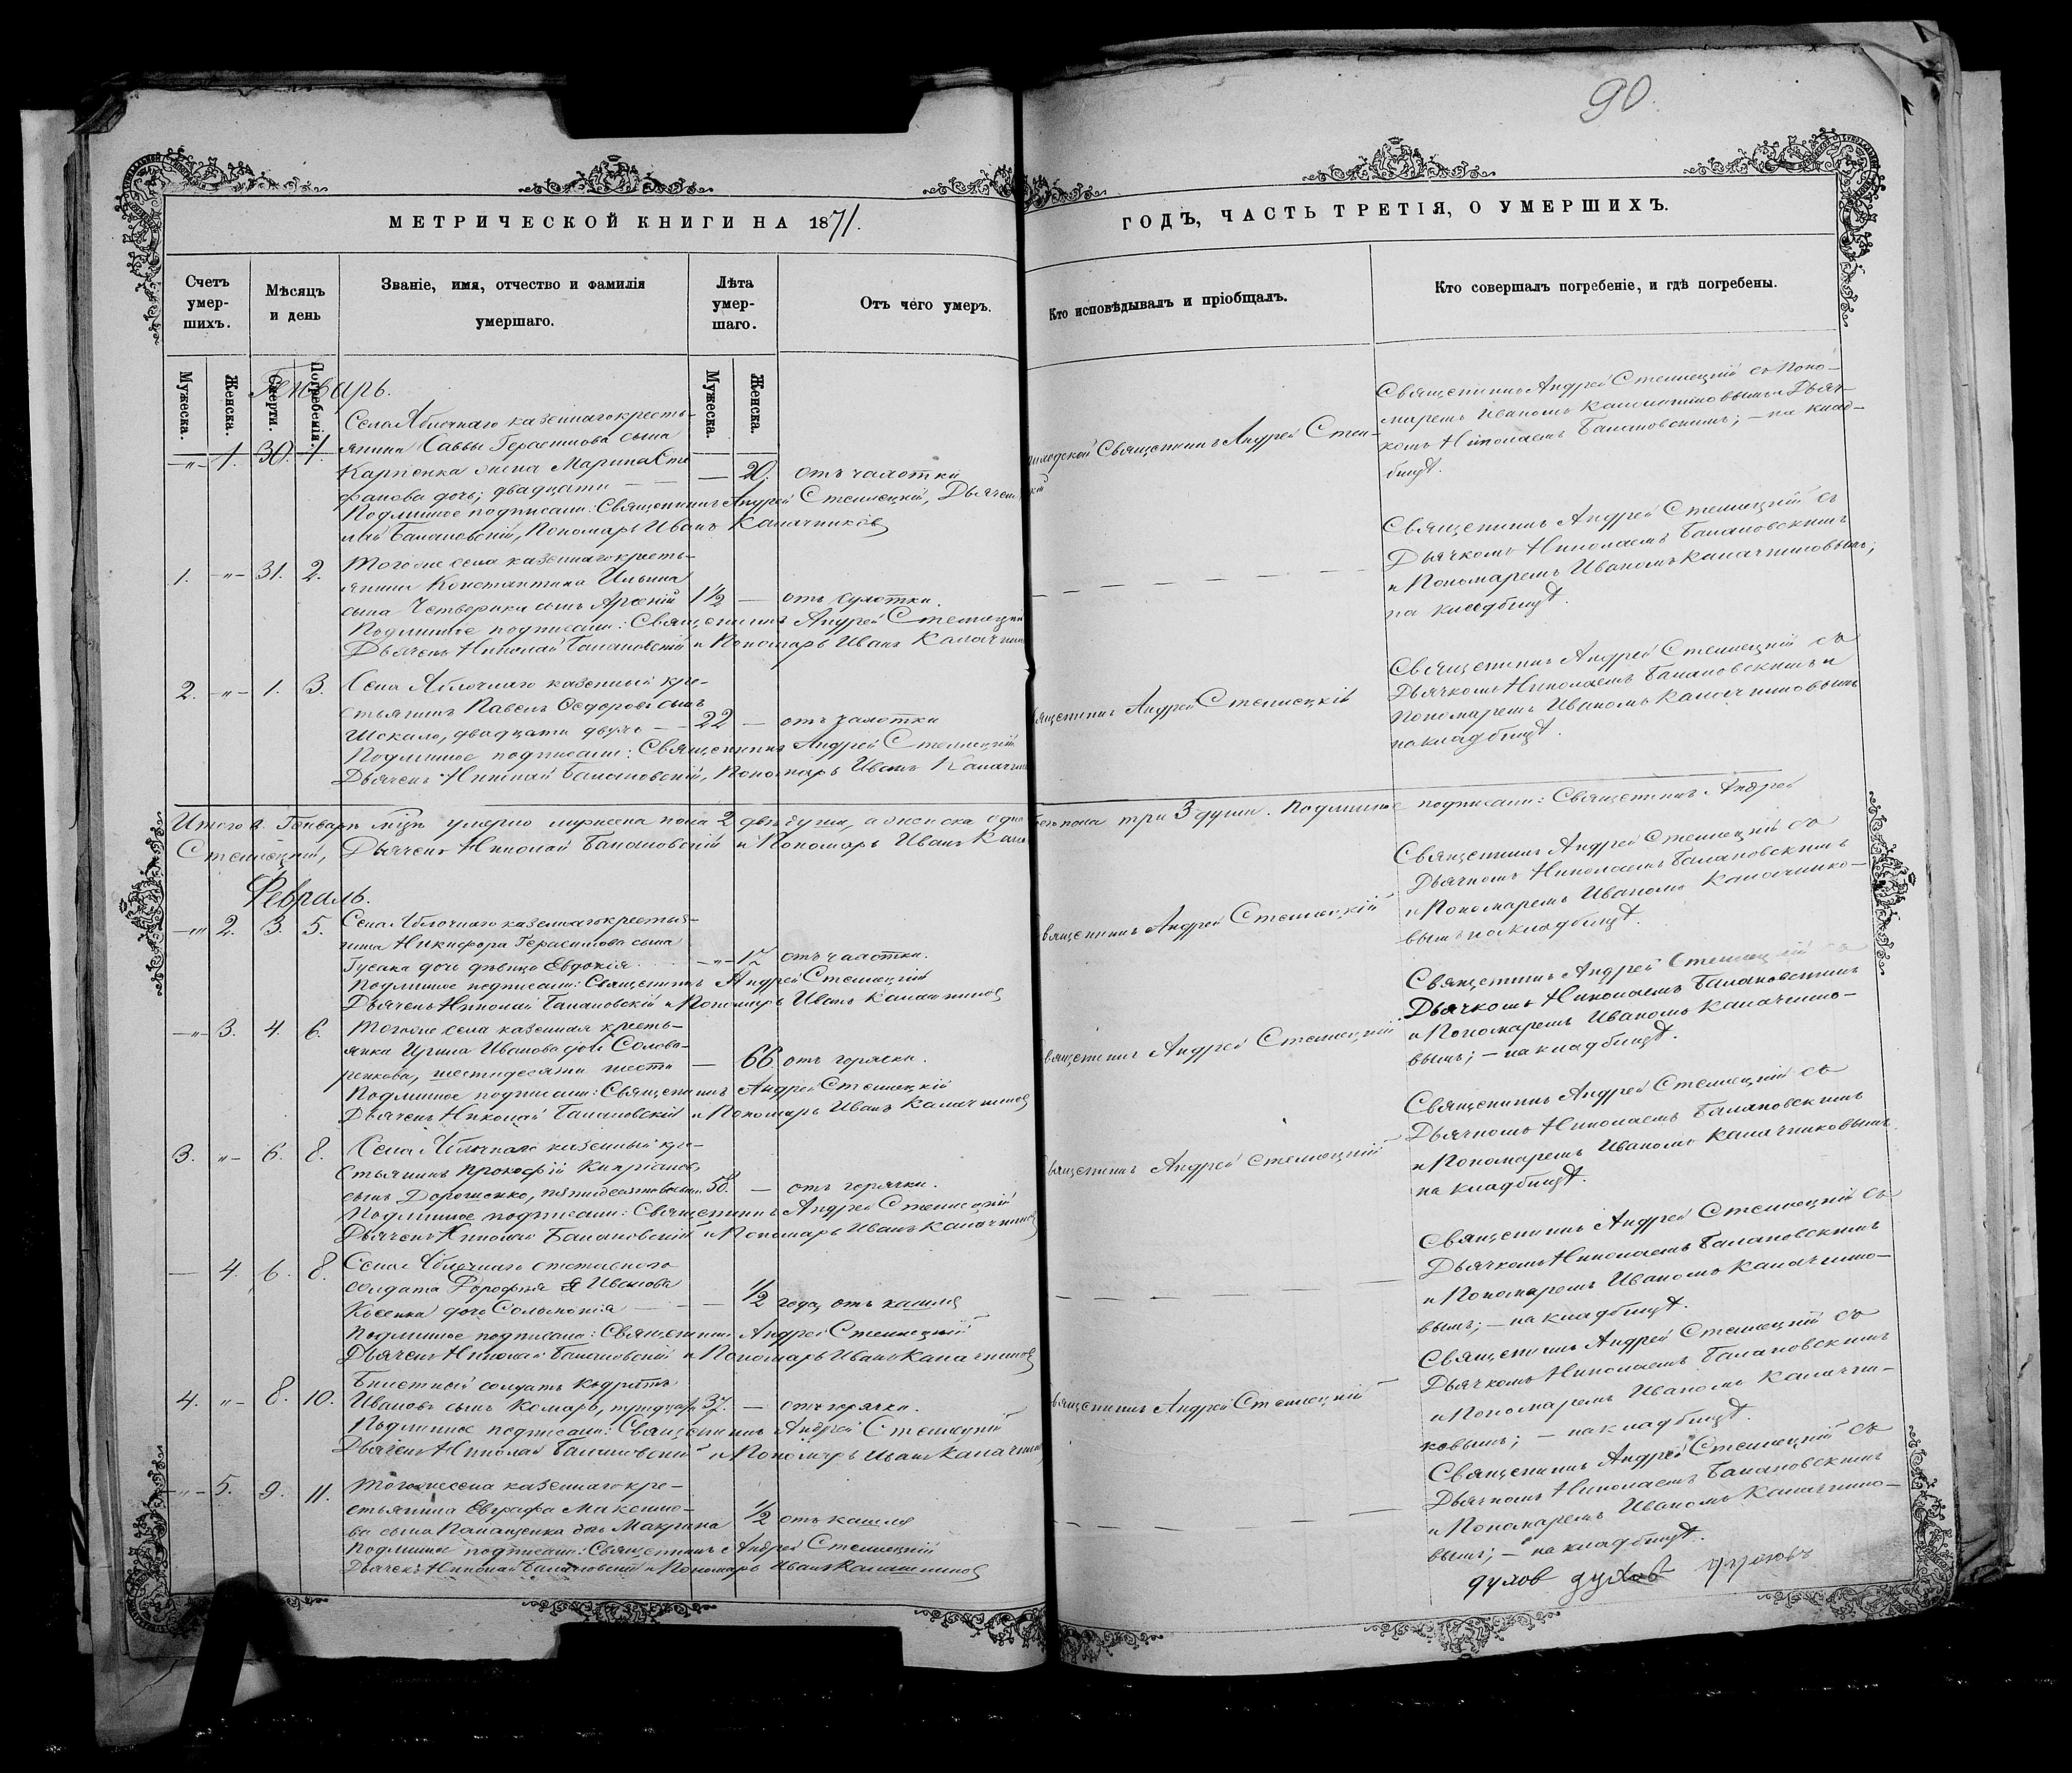 90.
МЕТРИЧЕСКОЙ КНИГИ НА 1871.
ГОДЪ, ЧАСТЬ ТРЕТІЯ, О УМЕРШИХЪ.
Счетъ умер-шихъ.
Мѣсяцъ и день
Званіе, имя, отчество и фамилія умершаго.
Лѣта умер-шаго.
Отъ чего умеръ.
Кто исповѣдывалъ и пріобщалъ.
Кто совершалъ погребеніе, и гдѣ погребены.
Мужеска.
Женска.
Смерти.
Погребенія.
Мужеска.
Женска.
Генварь.
Села Яблочнаго казеннаго кресть-
—„— 1. 30. 1. янина Саввы Герасимова сына
Карпенка жена Марина Сте — 20. отъ чахотки
фанова дочь; двадцати
Священникъ Андрей Стен-
Подлинное подписали: Священникъ Андрей Стеллецкій, Дьячекъ
Балановскій, Пономарь Иванъ Калачниковъ
Священникъ Андрей Стеллецкій съ Поно-
маремъ Иваномъ Калачниковымъ и Дьяч-
комъ Николаемъ Балановскимъ; — на клад-
бищѣ.
1. —„— 31. 2. Того же села казеннаго кресть-
янина Константина Ильина
сына Четверика сынъ Арсеній 1½ — отъ сухотки.
Подлинное подписали: Священникъ Андрей Стеллецкій
Дьячекъ Николай Балановскій и Пономарь Иванъ Калачник
Священникъ Андрей Стеллецкій съ
Дьячкомъ Николаемъ Балановскимъ
и Пономаремъ Иваномъ Калачниковымъ;
на кладбищѣ.
2. —„— 1. 3. Села Яблочнаго казенный кре-
стьянинъ Павелъ Ѳедоровъ сынъ
Шокало, двадцати двухъ — 22 — отъ чахотки
Священникъ Андрей Стеллецкій
Подлинное подписали: Священникъ Андрей Стеллецкій
Дьячекъ Николай Балановскій, Пономарь Иванъ Калачни
Священникъ Андрей Стеллецкій съ
Дьячкомъ Николаемъ Балановскимъ и
Пономаремъ Иваномъ Калачниковымъ
на кладбищѣ.
Итого въ Генварѣ мцѣ умерло мужеска пола 2 двѣ души, а женска одна пола три 3 души. Подлинное подписали: Священникъ Андрей
Стеллецкій, Дьячекъ Николай Балановскій и Пономарь Иванъ Кала
Февраль.
—„— 2. 3. 5. Села Яблочнаго казеннаго крестья-
нина Никифора Герасимова сына
Гусака дочь дѣвица Евдокія —„— 17 отъ чахотки.
Священникъ Андрей Стеллецкій
Подлинное подписали: Священникъ Андрей Стеллецкій
Дьячекъ Николай Балановскій и Пономарь Иванъ Калачниковъ
Священникъ Андрей Стеллецкій съ
Дьячкомъ Николаемъ Балановскимъ
и Пономаремъ Иваномъ Калачнико-
вымъ на кладбищѣ.
—„— 3. 4. 6. Того же села казенная кресть-
янка Ирина Иванова дочь Солова-
ренкова, шестидесяти шести — 66 отъ горячки.
Священникъ Андрей Стеллецкій
Подлинное подписали: Священникъ Андрей Стеллецкій
Дьячекъ Николай Балановскій и Пономарь Иванъ Калачниковъ
Священникъ Андрей Стеллецкій съ
Дьячкомъ Николаемъ Балановскимъ
и Пономаремъ Иваномъ Калачнико-
вымъ; — на кладбищѣ.
3. „— 6. 8. Села Яблочнаго казенный кре-
стьянинъ Прокофій Кипріановъ
сынъ Дорошенко, пятидесяти восьми 58. — отъ горячки.
Священникъ Андрей Стеллецкій
Подлинное подписали: Священникъ Андрей Стеллецкій
Дьячекъ Николай Балановскій и Пономарь Иванъ Калачниковъ
Священникъ Андрей Стеллецкій съ
Дьячкомъ Николаемъ Балановскимъ
и Пономаремъ Иваномъ Калачниковымъ
на кладбищѣ.
— 4. 6. 8. Села Яблочнаго отставного
солдата Дорофея Иванова
Косенка дочь Соломонія — ½ года, отъ кашля
Подлинное подписали: Священникъ Андрей Стеллецкій
Дьячекъ Николай Балановскій и Пономарь Иванъ Калачниковъ
Священникъ Андрей Стеллецкій съ
Дьячкомъ Николаемъ Балановскимъ
и Пономаремъ Иваномъ Калачнико-
вымъ; — на кладбищѣ.
4. „— 8. 10. Билетный солдатъ Кодратъ
Ивановъ сынъ Комаръ, тридцати 37. — отъ горячки.
Священникъ Андрей Стеллецкій
Подлинное подписали: Священникъ Андрей Стеллецкій
Дьячекъ Николай Балановскій и Пономарь Иванъ Калачник
Священникъ Андрей Стеллецкій съ
Дьячкомъ Николаемъ Балановскимъ
и Пономаремъ Иваномъ Калачни-
ковымъ; — на кладбищѣ.
—„— 5. 9. 11. Того же села казеннаго кре-
стьянина Евграфа Максимо-
ва сына Паращенка дочь Макрина ½ отъ кашля
Подлинное подписали: Священникъ Андрей Стеллецкій
Дьячекъ Николай Балановскій и Пономарь Иванъ Калачниковъ
Священникъ Андрей Стеллецкій съ
Дьячкомъ Николаемъ Балановскимъ
и Пономаремъ Иваномъ Калачнико-
вымъ; — на кладбищѣ.